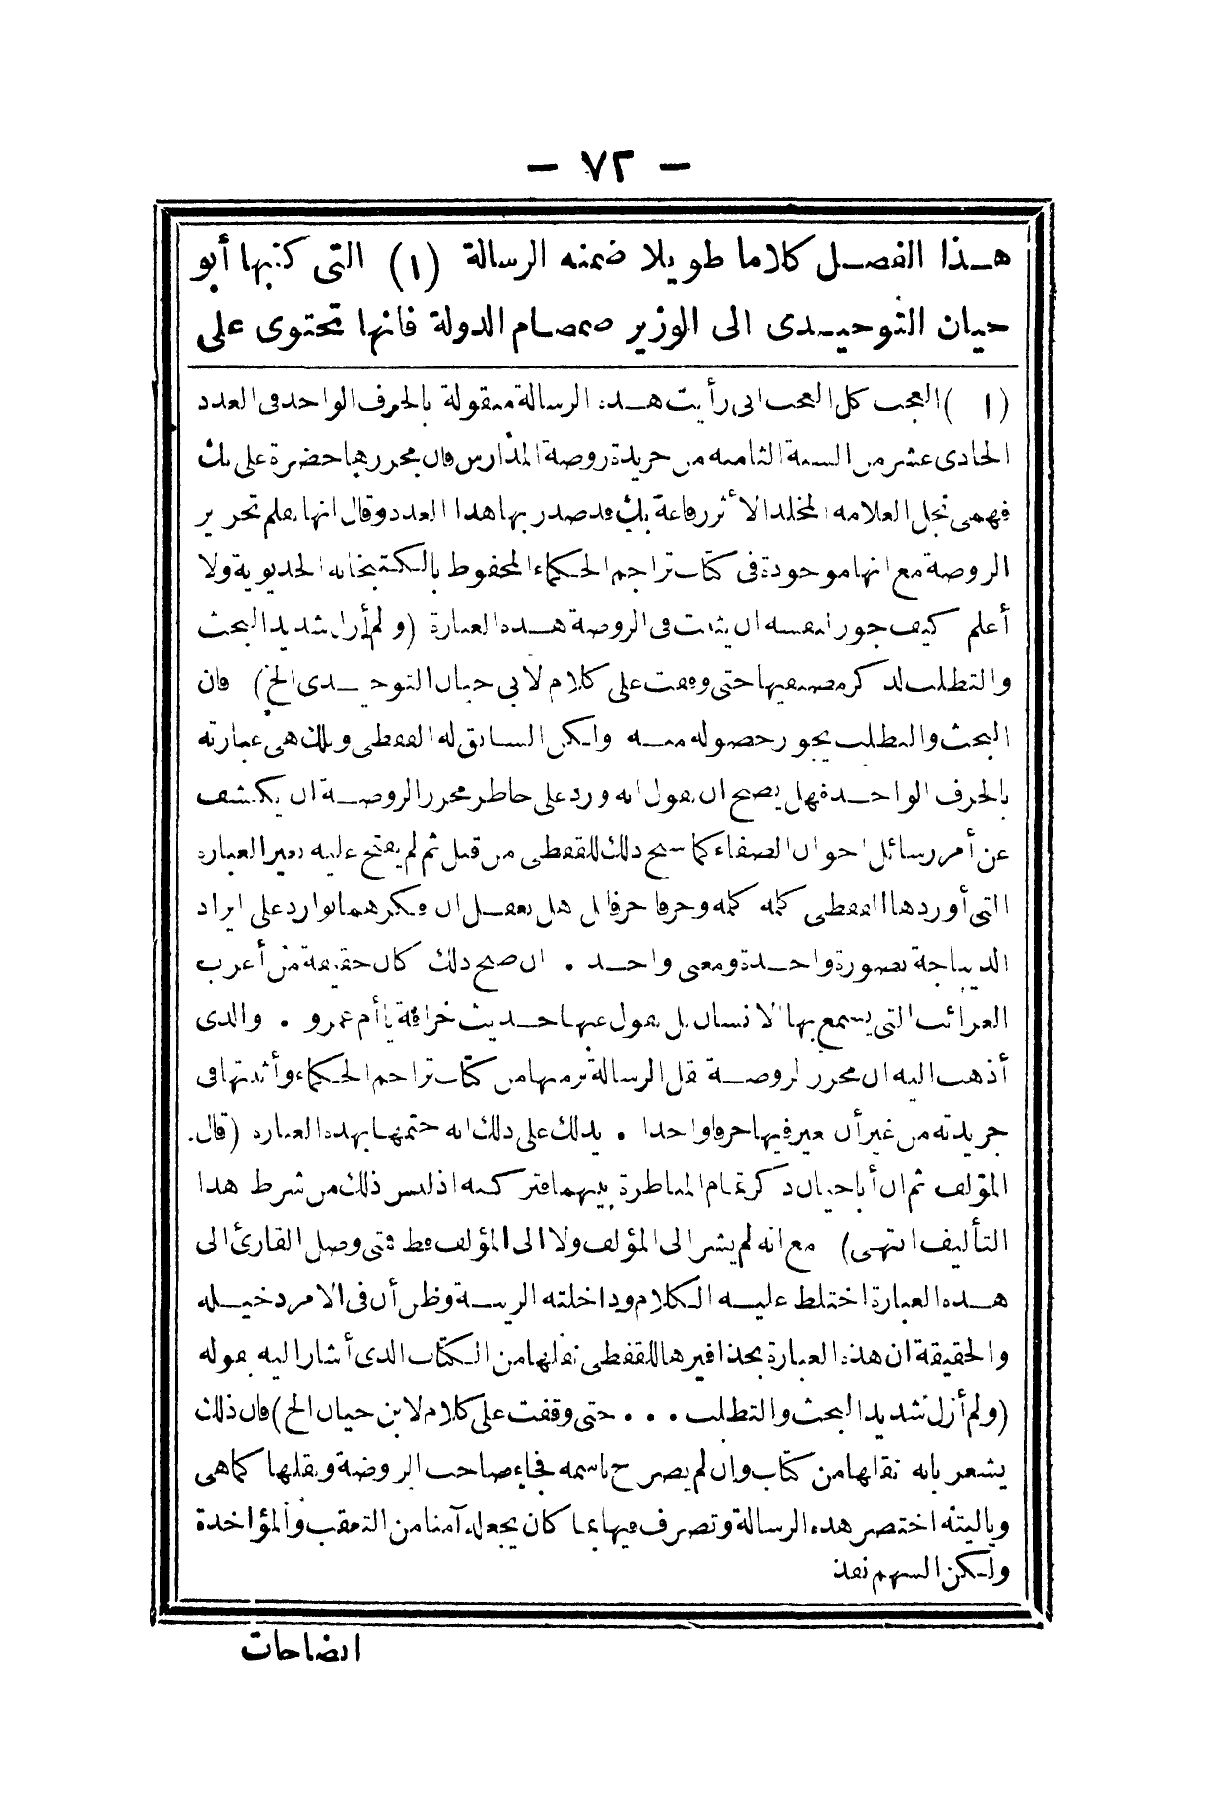 — ٧٢ —
هذا الفصل كلاما طويلا ضمنه الرسالة (١) التى كتبها أبو
حيان التوحيدى الى الوزير صمصام الدولة فانها تحتوى على
(١) العجب كل العجب انى رأيت هذه الرسالة منقولة بالحرف الواحد فى العدد
الحادى عشر من السنة الثامنه من جريدة روضة المدارس فان محررها حضرة على بك
فهمى نجل العلامه المخلد الأثر رفاعة بك قد صدر بها هذا العدد وقال انها بقلم تحرير
الروضة مع انها موجودة فى كتاب تراجم الحكماء المحفوظ بالكتبخانه الخديوية ولا
أعلم كيف جوز لنفسه ان يثبت فى الروضة هذه العبارة (ولم أزل شديد البحث
والتطلب لذكر مصنفيها حتى وقفت على كلام لابى حيان التوحيدى الخ) فان
البحث والتطلب يجوز حصوله منه ولكن السابق له القفطى وتلك هى عبارته
بالحرف الواحد فهل يصح ان يقول انه ورد على خاطر محرر الروضة ان يكشف
عن أمر رسائل اخوان الصفاء كما سنح ذلك للقفطى من قبل ثم لم يفتح عليه بغير العباره
التى أوردها القفطى كلمه كلمه وحرفا حرفا بل هل يعقل ان فكرهما توارد على ايراد
الديباجة بصورة واحدة ومعنى واحد . ان صح ذلك كان حقيقة من أغرب
الغرائب التى يسمع بها الانسان بل يقول عنها حديث خرافة ياأم عمرو . والذى
أذهب اليه ان محرر الروضة نقل الرسالة برمتها من كتاب تراجم الحكماء وأثبتها فى
جريدته من غير أن يغير فيها حرفا واحدا . يدلك على ذلك انه ختمها بهذه العباره (قال
المؤلف ثم ان أباحيان ذكر تمام المناظرة بينهما فتركته اذ ليس ذلك من شرط هذا
التأليف انتهى) مع انه لم يشر الى المؤلف ولا الى المؤلف قط فتى وصل القارئ الى
هذه العبارة اختلط عليه الكلام وداخلته الريبة وظن أن فى الامر دخيله
والحقيقة ان هذه العبارة بحذافيرها للقفطى نقلها من الكتاب الذى أشار اليه بقوله
(ولم أزل شديد البحث والتطلب . . . حتى وقفت على كلام لابن حيان الخ) فان ذلك
يشعر بانه نقلها من كتاب وان لم يصرح باسمه فجاء صاحب الروضة ونقلها كما هى
وياليته اختصر هذه الرسالة وتصرف فيها بما كان يجعله آمنا من التعقب والمؤاخذة
ولكن السهم نفذ
ايضاحات